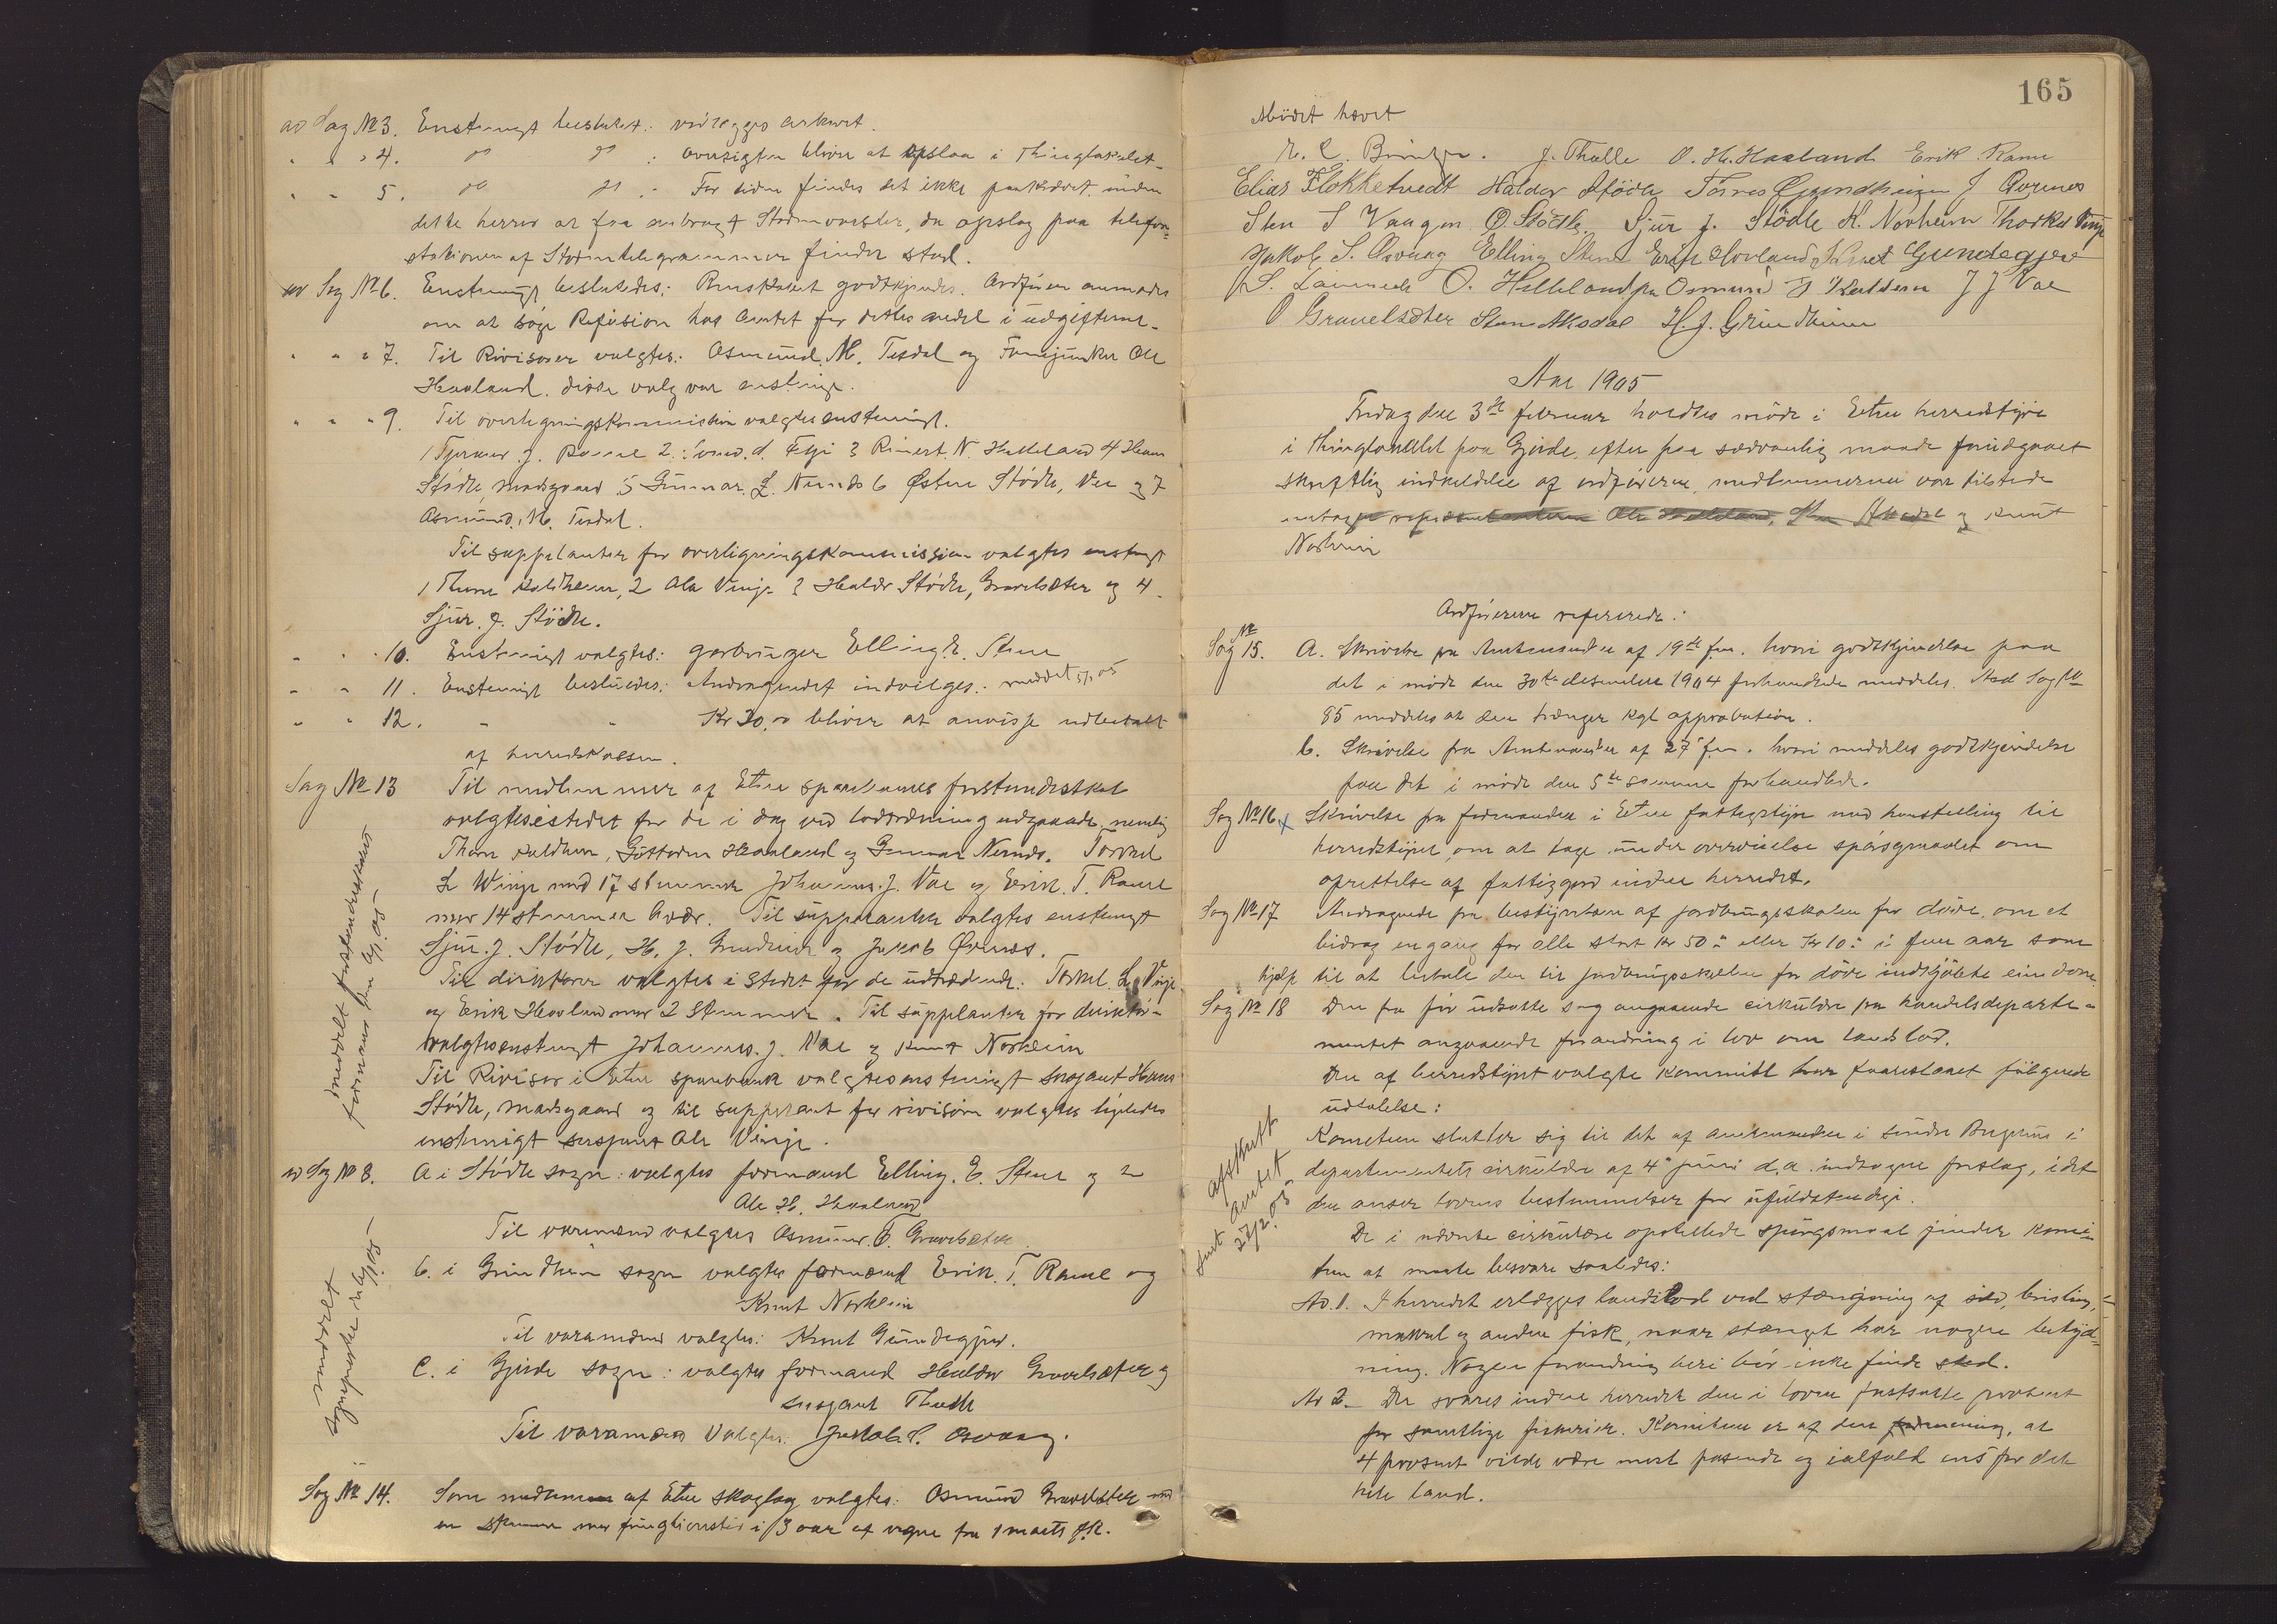 ad Sag № 3. Enstemmigt besluttet: vedlegges arkivet.
" " " 4. " " : oversigten bliver at opslaa i Thinglokalet.
" " 5. " " : For tiden findes det ikke paakrævet inden
dette herred at faa anbragt Stormvarsler, da opslag paa telefon-
stationen af Stormtelegrammer finder sted.
ad Sag № 6. Enstemmigt besluttedes: Regnskabet godkjendes. Ordføren anmodes
om at søge Refusion hos Amtet for dettes andel i udgifterne.
" " " 7. Til Revisorer valgtes: Osmund M. Tesdal og Ole
Haaland. disse valg var enstemmige.
" " " 9. Til overligningskommission valgtes enstemmigt.
1 J. Ramme 2. d. Fitje 3 Rinert N. Helleland 4 Hans
Stödle, Madsgaard 5 Gunnar L. Nernes 6 Østen Stödle, Vee og 7
Osmund M. Tesdal.
Til supplanter for overligningskommission valgtes enstemmigt
1 Thore Kaldheim, 2 Ole Vinje 3 Haldor Stödle, Gravelsæter og 4.
Sjur J. Stödle.
" " 10. Enstemmigt valgtes: gaardbruger Elling E. Stene
" " 11. Enstemmigt besluttedes: Andragendet indvilges. meddelt 5/1 05
" " 12. " " Kr 30,00 bliver at anvise udbetalt
af herredskassen.
Sag № 13 Til medlemmer af Etne sparebanks forstanderskab
valgtes istedet for de i dag ved lodtrækning udgaaede, nemlig
Thore Kaldheim, Guttorm Haaland og Gunnar Nernes. Torkel
L Winje med 17 stemmer Johannes J. Vae og Erik T. Ramme
med 14 stemmer hver. Til supplanter valgtes enstemmigt
Sjur J. Stödle, H. J. Grindheim og Jakob Øvrnes.
Til direktører valgtes i stedet for de udtrædende: Torkel L Vinje
og Erik Hovland med 2 Stemmer. Til supplanter for direktör-
valgtes enstemmigt Johannes J. Vae og Knut Norheim
Til Revisor i Etne sparebank valgtes enstemmigt sersjant Hans
Stödle, Madsgaard og til supplant for revisoren valgtes ligeledes
enstemmigt sersjant Ole Vinje.
meddelt forstanderskabets
formand den 6/1 05
ad Sag № 8. A i Stödle sogn: valgtes formand Elling E. Stene og
Ole H. Haaland
Til varamænd valgtes Osmund T. Gravelsæter
b. i Grindheim sogn valgtes formand Erik T. Ramme og
Knut Norheim
Til varamænd valgtes: Knut Gundegjær.
C. i Gjerde sogn: valgtes formand Haldor Gravelsæter og
sersjant Thalle
Til varamænd valgtes: Jakob S. Osvaag.
meddelt
sognepresten 6/1 05
Sag № 14. Som medlem af Etne skoglag valgtes: Osmund Gravelsæter med
en stemme med funktionstid i 3 aar at regne fra 1 marts d.A.
165
Mödet hævet
J. Thalle O. H. Haaland Erik Ramme
Elias Flokketvedt Haldor Stödle Tørres Grindheim J Øvrenes
Sten S Vaagen O. Stödle. Sjur J. Stödle K. Norheim Thorkel Vinje
Jakob S. Osvaag Elling Stene Erik Hovland Knut Gundegjer
O. Helleland Osmund J J Vae
O Gravelsæter Sten Aksdal H. J. Grindheim
Aar 1905
Fredag den 3die februar holdtes möde i Etne herredstyre
i thinglokalet paa Gjerde, efter paa sædvanlig maade forudgaaet
skriftlig indkaldelse af ordføreren, medlemmerne var tilstede
undtagen repræsentanterne Ole Helleland, Sten Aksdal og Knut
Norheim
Ordføreren refererede:
Sag № 15. A. Skrivelse fra Amtmanden af 19de jan. hvori godkjendelse paa
det i möde den 30te desember 1904 forhandlede meddeles. Ad Sag №
85 meddeles at den trænger kgl approbation.
b. Skrivelse fra Amtmanden af 27 jan. hvori meddeles godkjendelse
paa det i möde den 5te samme forhandlede.
Sag № 16 x Skrivelse fra formanden i Etne fattigstyre med henstilling til
herredstyret om at tage under overveielse spörsgmaalet om
oprettelse af fattiggaard inden herredet.
Sag № 17 Andragende fra bestyrelsen af jordbrugsskolen for döve, om et
bidrag en gang for alle stort kr 50,- eller Kr 10,- i fem aar som
hjælp til at betale den til jordbrugsskolen for döve indkjöbte eiendom.
Sag № 18 Den fra för udsatte sag angaaende cirkulære fra handelsdeparte-
mentet angaaende forandring i lov om landslod.
Den af herredstyret valgte kommité har foreslaaet fölgende
udtalelse:
Komiteen slutter sig til det af amtmanden i Söndre Bergenhus i
departementets cirkulære af 4 juni d.a. indtagne forslag, idet
den anser lovens bestemmelser for ufuldstændige.
De i nævnte cirkulære opstillede spörgsmaal finder komi-
teen at maatte besvare saaledes:
afskrift
sendt amtet
27/2 05
Ad. 1. I herredet erlægges landslod ved stængning af sild, brisling,
makrel og anden fisk, naar stænget har nogen betyd-
ning. Nogen forandring heri bör ikke finde sted.
Ad 2. Der svares inden herredet den i loven fastsatte procent
for samtlige fiskerier. Komiteen er af den formening, at
4 prosent vilde være mest passende og ialfald ens for det
hele land.